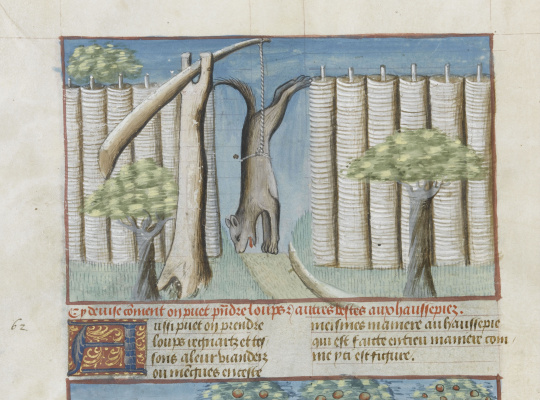 Cy deuise coment on puet prendre loups & autres bestes aux haussepiez.
62
Ausi puet on prendre
loups regnartz et tes
sons a leur viandez
ou mesmes en ceste
mesmes maniere au haussepie
qui est faitte en ceu maniere com
me yci est figure.